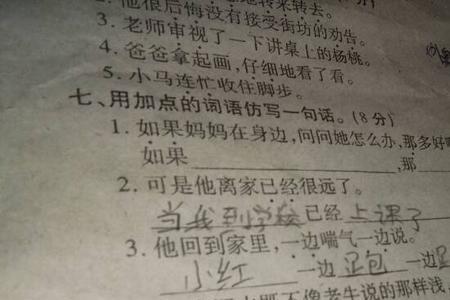 2. 他很后悔没有接受街坊的劝告。
3. 老师审视了一下讲桌上的杨桃。
4. 爸爸拿起画,仔细地看了看。
5. 小马连忙收住脚步。
七、用加点的词语仿写一句话。(8分)
1. 如果妈妈在身边,问问她怎么办,那多好
如果 ,那
2. 可是他离家已经很远了。
当我到学校已经上课了
3. 他回到家里,一边喘气一边说。
小红 一边 一边
像老牛说的那样浅